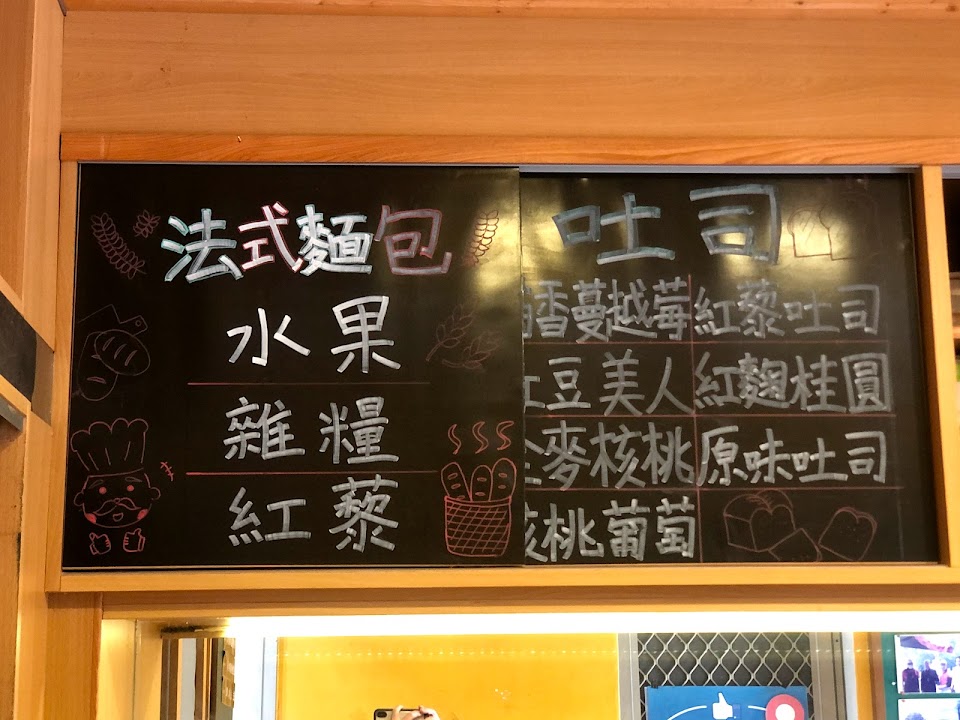 法式麵包
水果
雜糧
紅藜
吐司
香蔓越莓 紅藜吐司
豆美人 紅麴桂圓
麥核桃 原味吐司
核桃葡萄